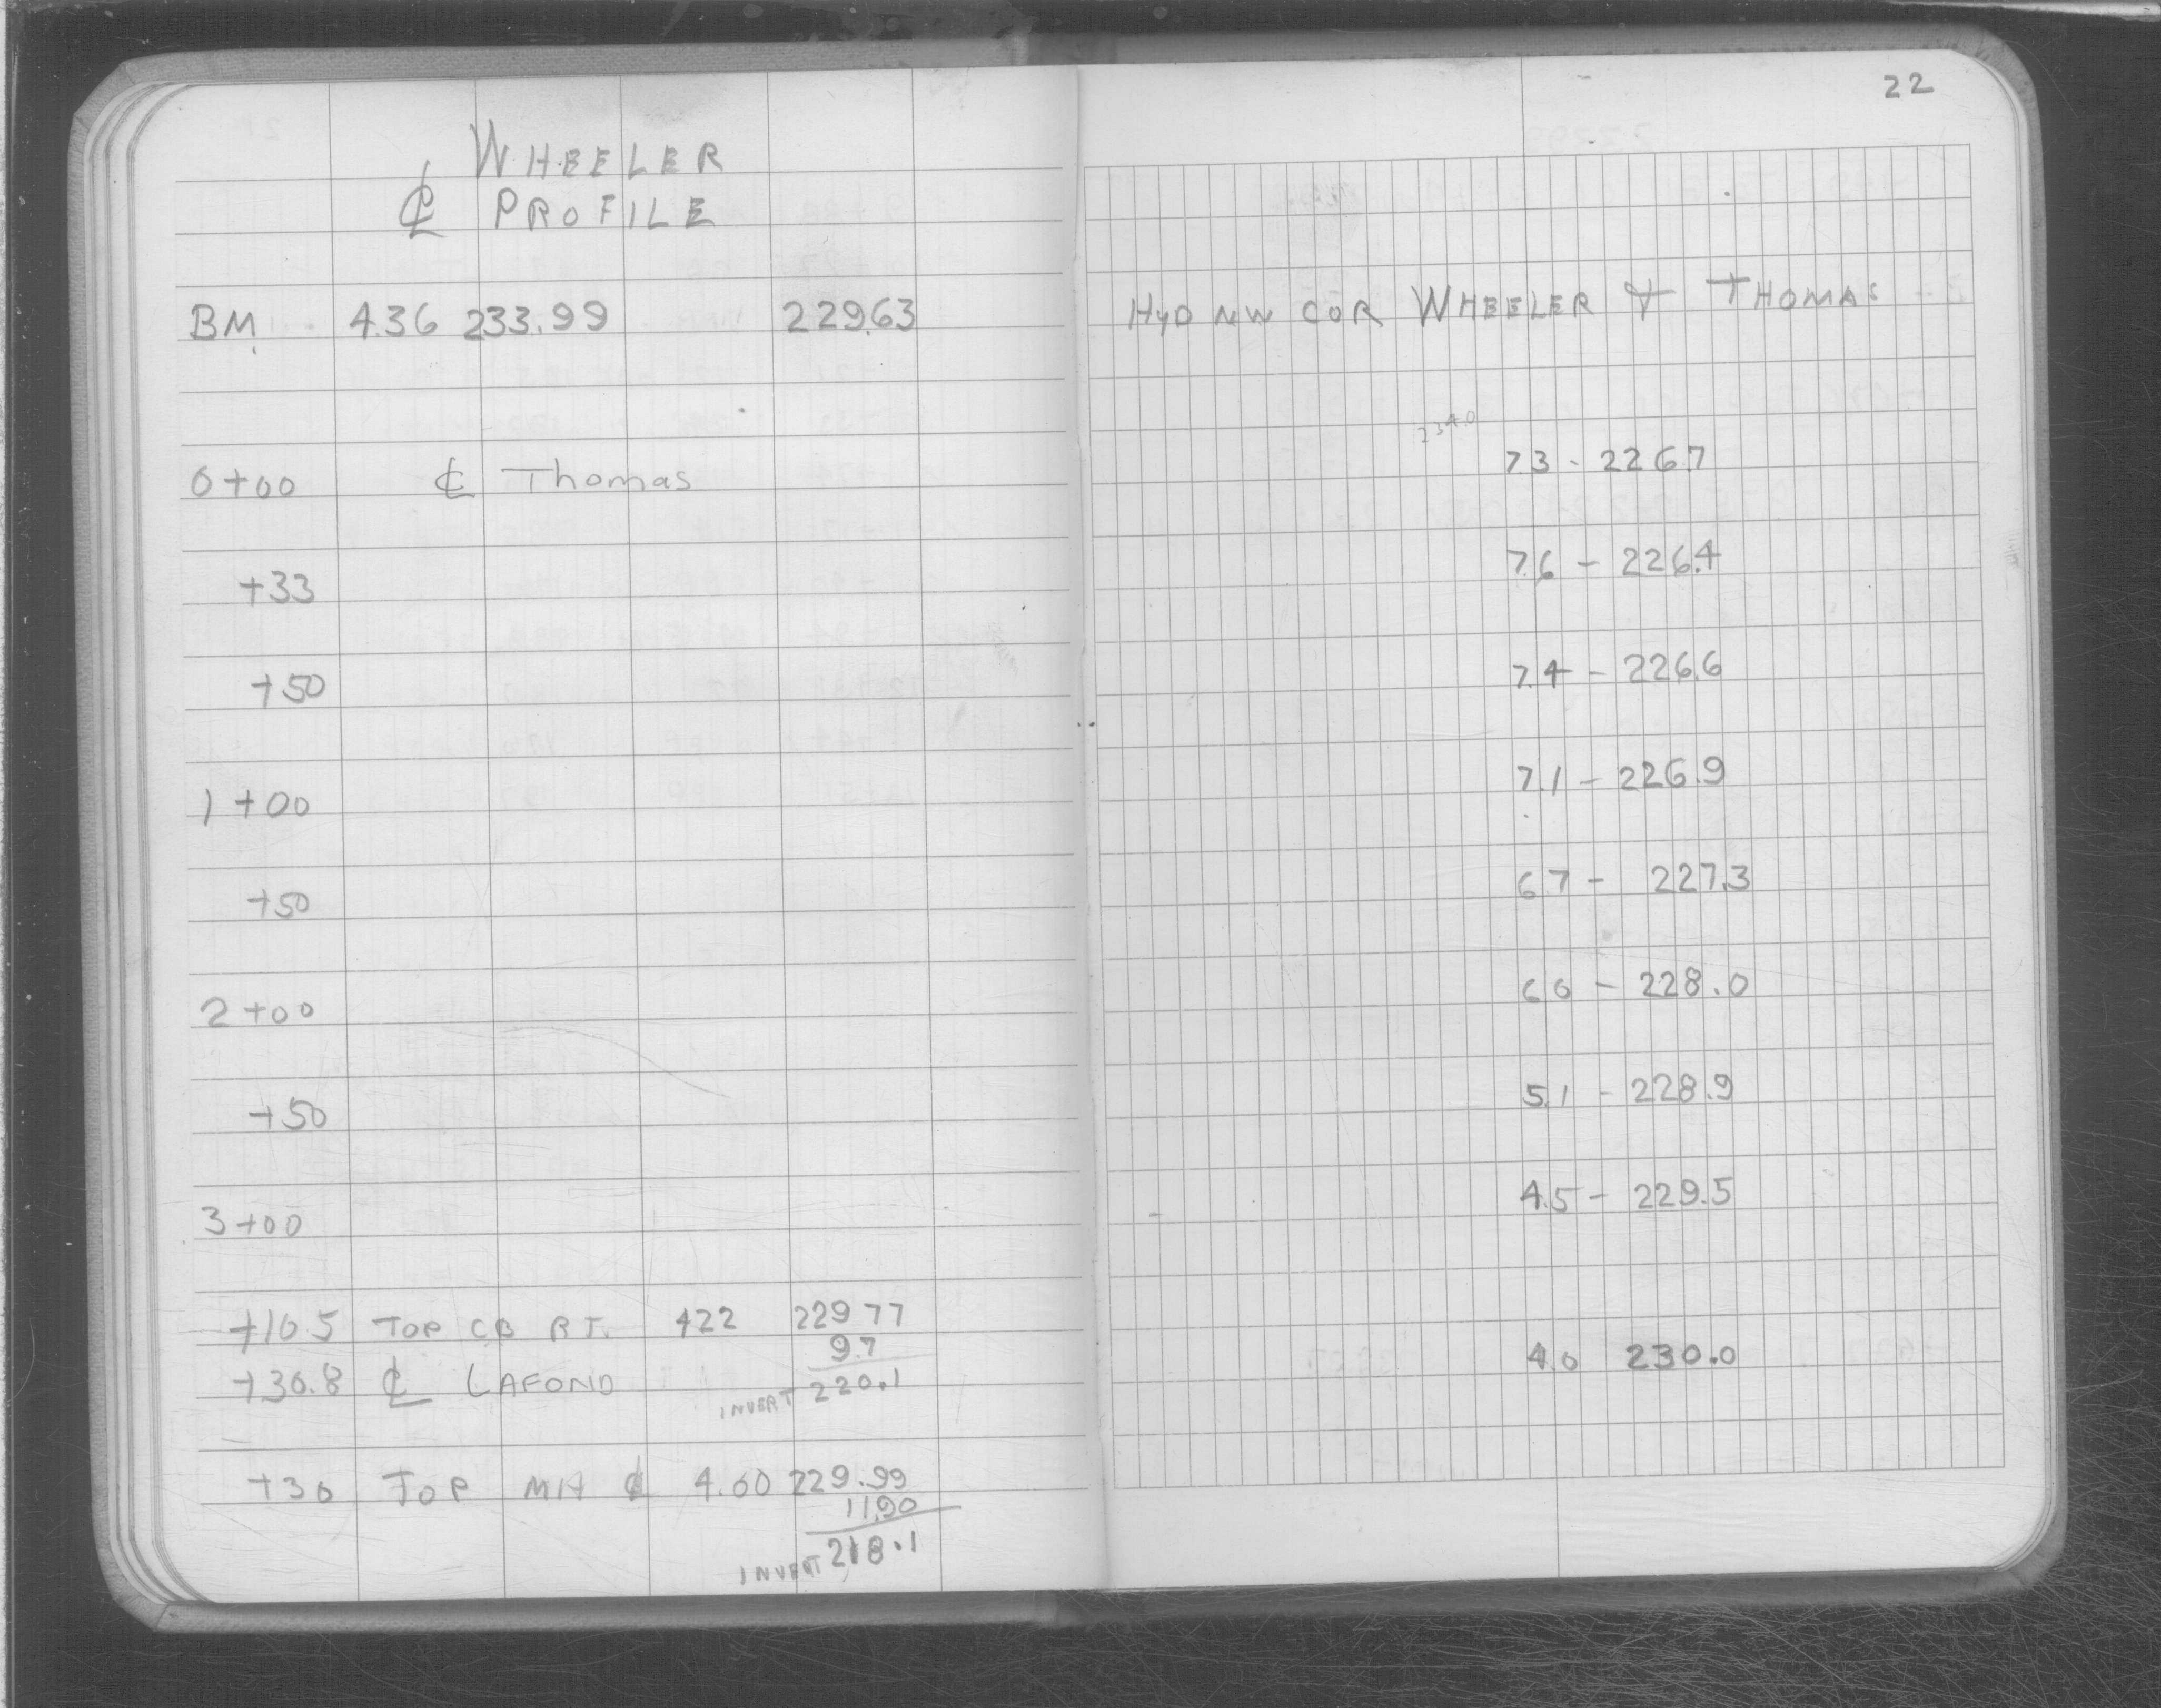 22
WHEELER
℄ PROFILE
BM 4.36 233.99 229.63 HYD NW COR WHEELER & THOMAS
234.0
0+00 ℄ Thomas 7.3 - 226.7
+33 7.6 - 226.4
+50 7.4 - 226.6
1+00 7.1 - 226.9
+50 6 7 - 227.3
2+00 6 0 - 228.0
+50 5.1 - 228.9
3+00 4.5 - 229.5
+10 5 TOP CB RT. 4 22 229 77
9.7
+30.8 ℄ LAFOND INVERT 220.1 4.0 230.0
+30 TOP MH ℄ 4.00 229.99
11.90
INVERT 218.1